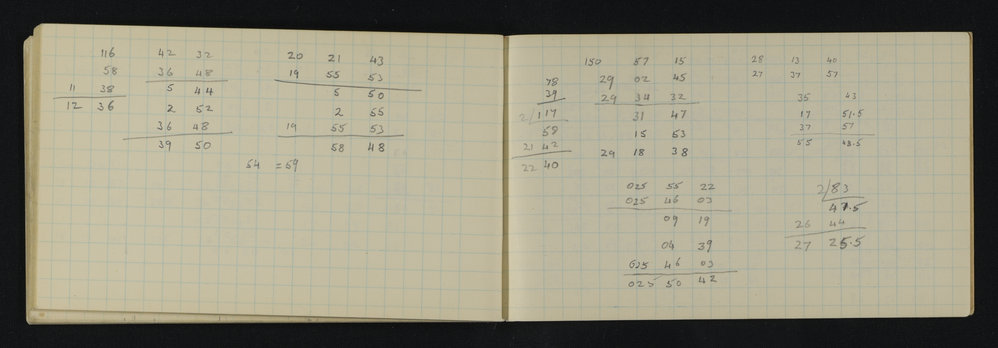 116
58
11 38
12 36
42 32
36 48
5 44
2 52
36 48
39 50
20 21 43
19 55 53
5 50
2 55
19 55 53
58 48
54 = 59
78
39
2/117
58
21 42
22 40
150 57 15
29 02 45
29 34 32
31 47
15 53
29 18 38
025 55 22
025 46 03
09 19
04 39
025 46 03
025 50 42
28 13 40
27 37 57
35 43
17 51.5
37 57
55 48.5
2/83
41.5
26 44
27 25.5